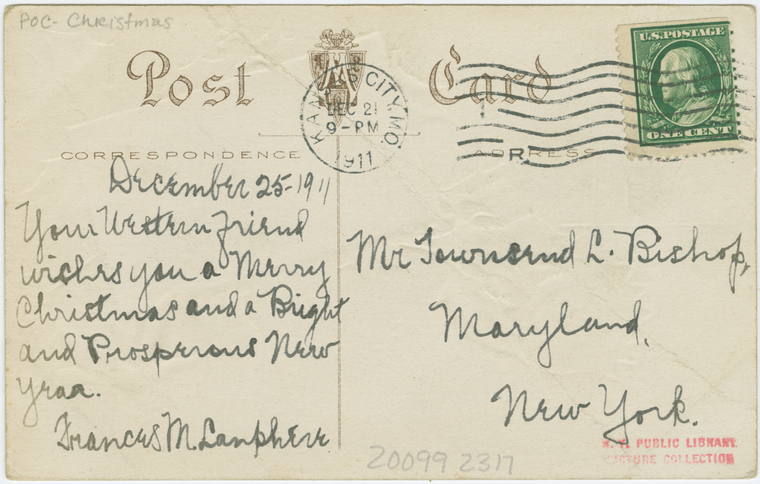 POC - Christmas
Post Card
U.S. POSTAGE
ONE CENT
KANSAS CITY, MO.
DEC 21
9-PM
1911
R
CORRESPONDENCE
ADDRESS
December 25-1911
Your Western friend
wishes you a Merry
Christmas and a Bright
and Prosperous New
Year.
Frances M. Lanphere
Mr Townsend L. Bishop,
Maryland,
New York.
N. Y. PUBLIC LIBRARY
PICTURE COLLECTION
20099 2317